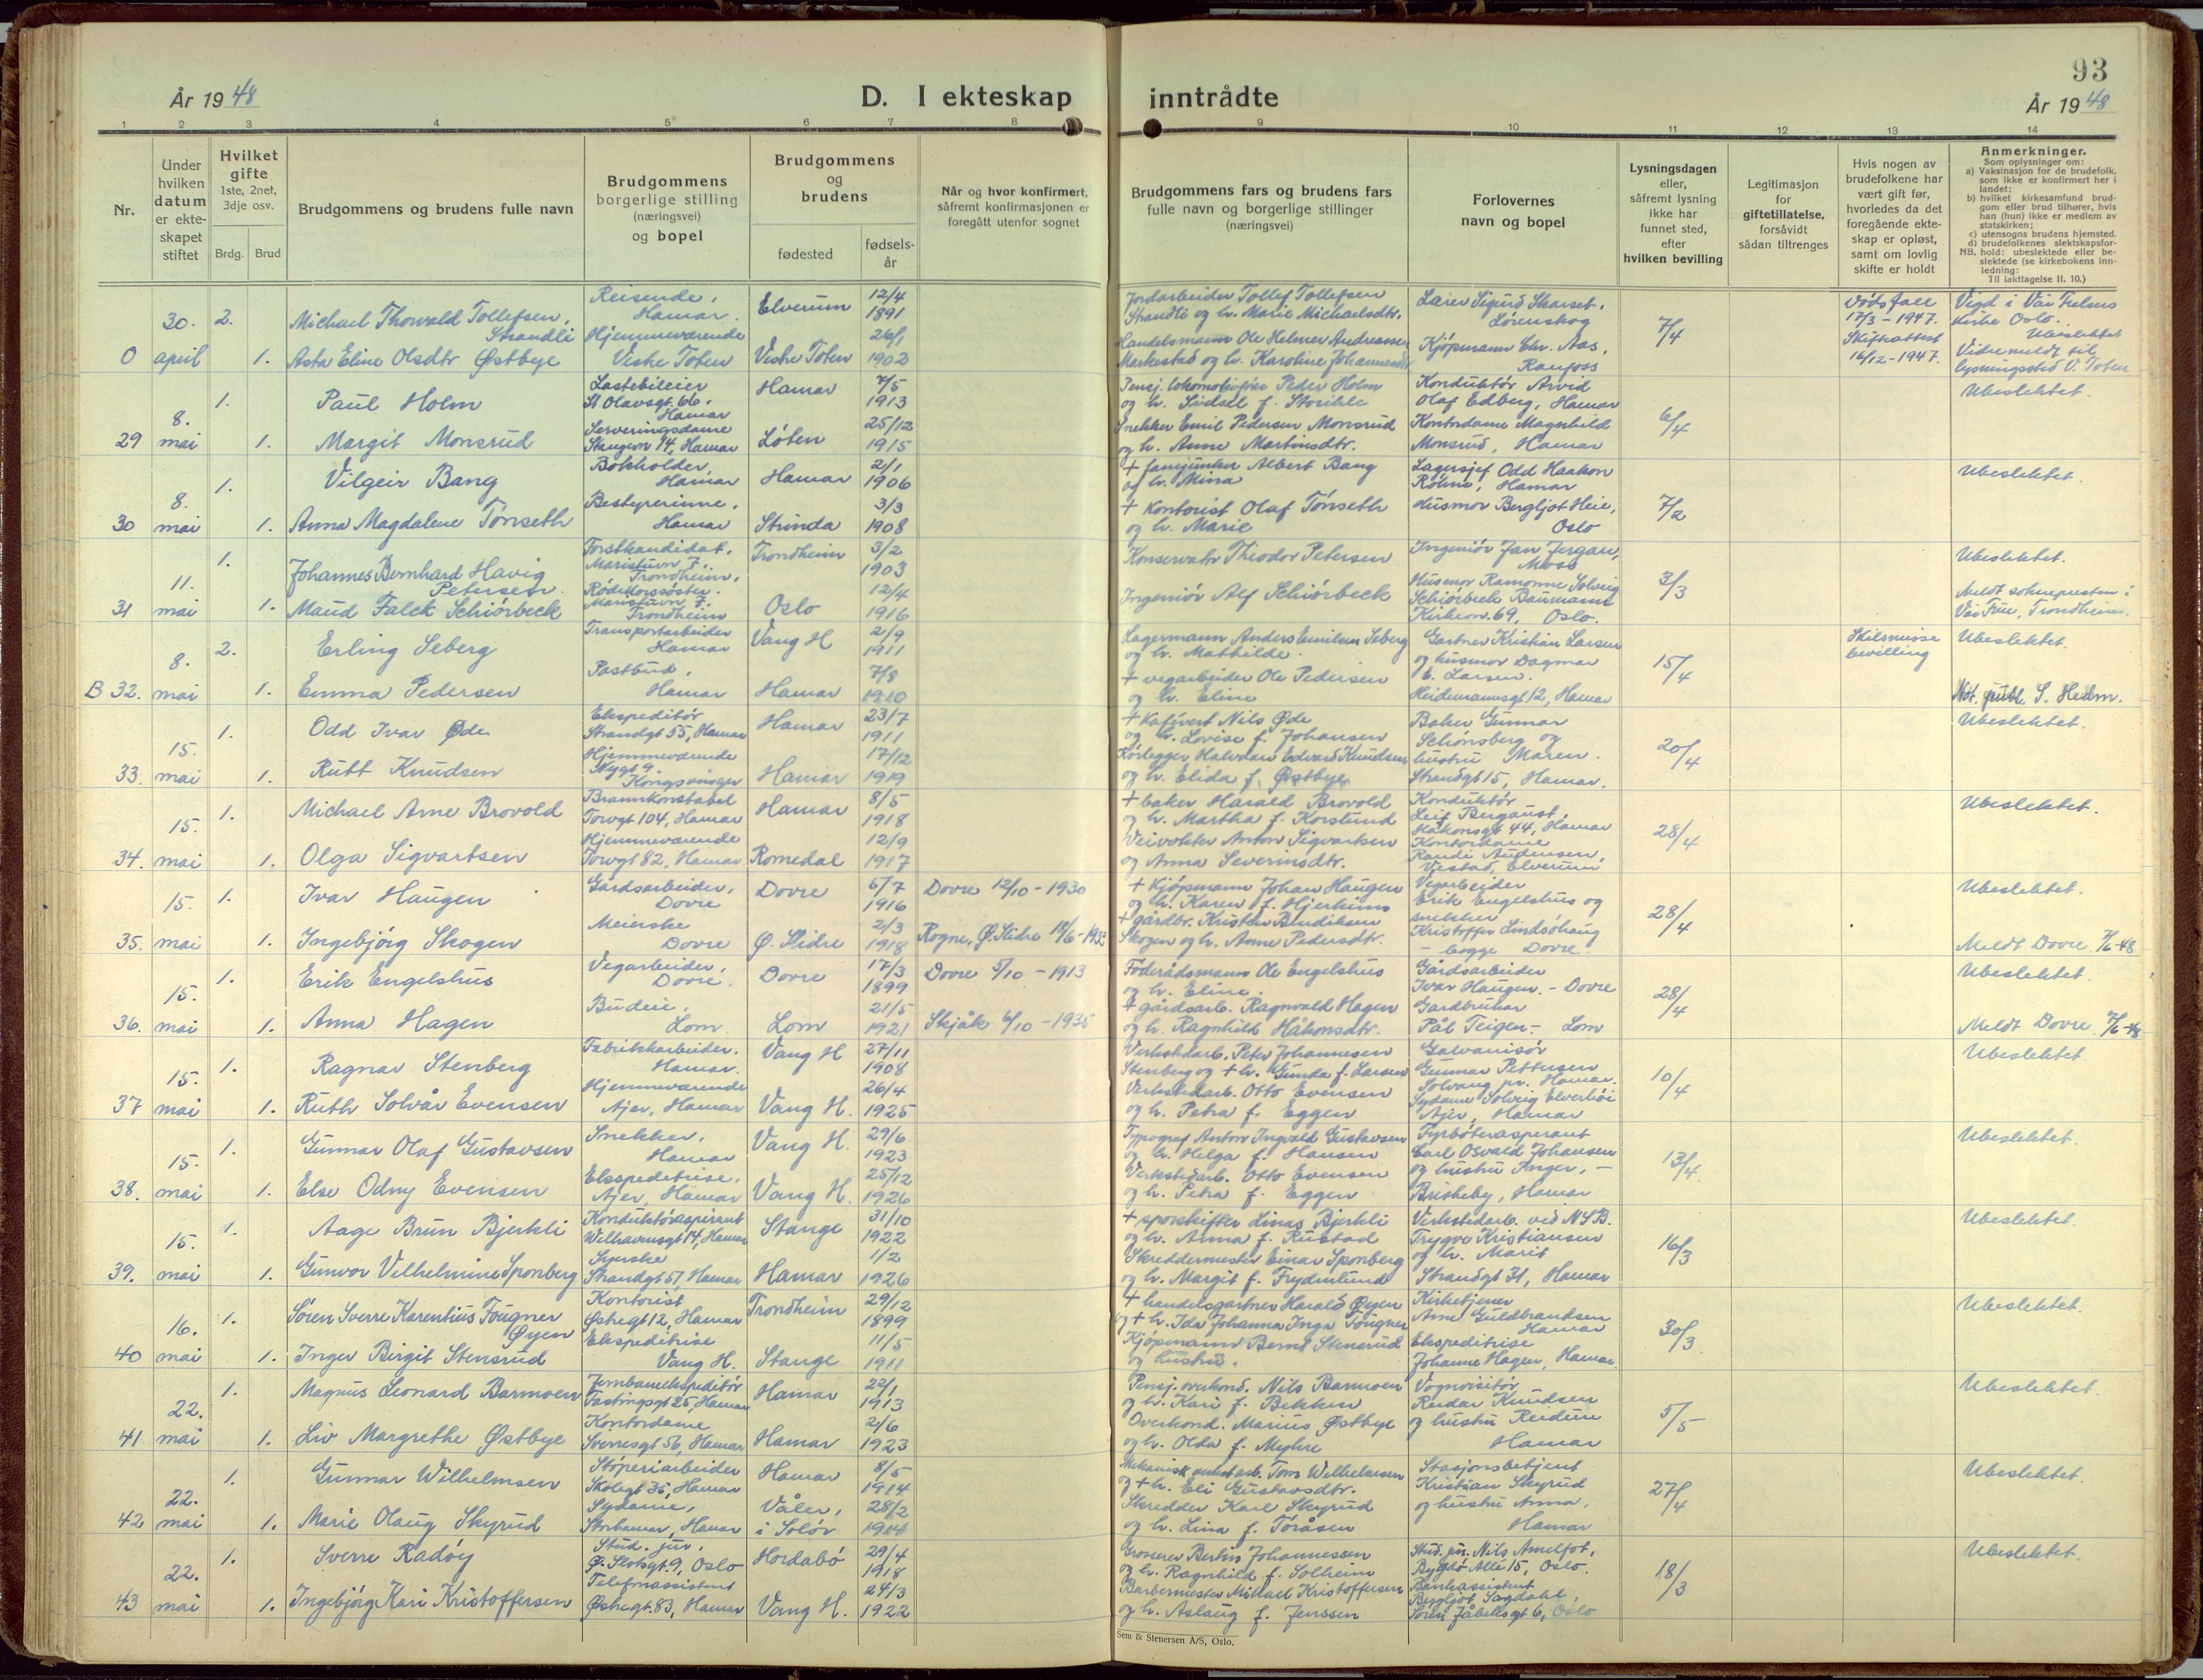 93
År 1948
D. I ekteskap inntrådte
År 1948
1 2 3 4 5 6 7 8 9 10 11 12 13 14
Nr.
Under hvilken datum er ekte-skapet stiftet
Hvilket gifte
1ste, 2net, 3dje osv.
Brdg. Brud
Brudgommens og brudens fulle navn
Brudgommens borgerlige stilling (næringsvei) og bopel
Brudgommens og brudens
fødested
fødsels-år
Når og hvor konfirmert, såfremt konfirmasjonen er foregått utenfor sognet
Brudgommens fars og brudens fars fulle navn og borgerlige stillinger (næringsvei)
Forlovernes navn og bopel
Lysningsdagen eller, såfremt lysning ikke har funnet sted, efter hvilken bevilling
Legitimasjon for giftetillatelse, forsåvidt sådan tiltrenges
Hvis nogen av brudefolkene har vært gift før, hvorledes da det foregående ekte-skap er opløst, samt om lovlig skifte er holdt
Anmerkninger.
Som oplysninger om:
a) Vaksinasjon for de brudefolk, som ikke er konfirmert her i landet;
b) hvilket kirkesamfund brud-gom eller brud tilhører, hvis han (hun) ikke er medlem av statskirken;
c) utensogns brudens hjemsted.
d) brudefolkenes slektskapsfor-hold: ubeslektede eller be-slektede (se kirkebokens inn-ledning:
NB. Til iakttagelse II. 10.)
0 30. april 2. Michael Thorvald Tollefsen Strandli Reisende, Hamar. Elverum 12/4 1891 Jordarbeider Tollef Tollefsen Strandli og h. Marie Michaelsdtr. Lærer Sigurd Skarset, Lørenskog 7/4 Dødsfall 17/3-1947. Skifteattest 16/12-1947. Vigd i Vår Frelsers kirke Oslo. Ubeslektet
1. Asta Eline Olsdtr Østbye Hjemmeværende Vestre Toten Vestre Toten 26/1 1902 Handelsmann Ole Helmer Andreassen Markestad og h. Karoline Johannesdtr Kjøpmann Chr. Aas, Raufoss
29 8. mai 1. Paul Holm Lastebileier St Olavsgt. 66, Hamar Hamar 7/5 1913 Pensj. lokomotivfører Peder Holm og h. Sidsel f. Konduktør Arvid Olaf Edberg, Hamar 6/4 Ubeslektet.
1. Margit Monsrud Serveringsdame Skappelsv 14, Hamar Løten 25/12 1915 Snekker Emil Pedersen Monsrud og h. Anne Martinsdtr. Kontordame Magnhild Monsrud, Hamar
30 8. mai 1. Vilgeir Bang Bokholder, Hamar Hamar 2/1 1906 + fanejunker Albert Bang og h. Mina Lagersjef Odd Haakon Hamar 7/2 Ubeslektet.
1. Anna Magdalene Tønseth Bestyrerinne, Hamar Strinda 3/3 1908 + Kontorist Olaf Tønseth og h. Marie Husmor Bergljot Heie, Oslo
31 11. mai 1. Johannes Bernhard Havig Petersen. Forstkandidat, Trondheim. Trondheim 3/2 1903 Konservator Theodor Petersen Ingeniør Jan Jergan, Moss 3/3 Ubeslektet.
1. Maud Falck Schiørbeck Rødekorssøster. Trondheim Oslo 12/4 1916 Ingeniør Alf Schiørbeck Husmor Ramonne Solveig Schiørbeck Baumann Kirkevn. 69, Oslo. Meldt soknepresten i Vår Frue, Trondheim.
B 32. 8. mai 2. Erling Seberg Transportarbeider Hamar Vang H 2/9 1911 Lagermann Anders Emilsen Seberg og h. Mathilde. Gartner Kristian Larsen og husmor Dagmar E. Larsen. Heidemannsgt 12, Hamar 15/4 Skilsmisse bevilling Ubeslektet.
1. Emma Pedersen Postbud, Hamar Hamar 7/8 1920 + vegarbeider Ole Pedersen og h. Eline Not. publ. S. Hedm.
33. 15. mai 1. Odd Ivar Øde Ekspeditør Strandgt 55, Hamar Hamar 23/7 1911 + Kafévert Nils Øde og h. Lovise f. Johansen Baker Gunnar Schønsberg og hustru Maren. Strandgt 15, Hamar. 20/4 Ubeslektet.
1. Rutt Knudsen Hjemmeværende Nygt 9. Kongsvinger Hamar 17/12 1919 Rørlegger Halvdan Edvard Knudsen og h. Elida f. Østbye
34. 15. mai 1. Michael Arne Brovold Brannkonstabel Torvgt 104, Hamar Hamar 8/5 1918 + baker Harald Brovold og h. Martha f. Korslund Konduktør Leif Bergaust, Håkonsgt 44, Hamar 28/4 Ubeslektet.
1. Olga Sigvartsen Hjemmeværende Torvgt 82, Hamar Romedal 12/9 1917 Veivokter Anton Sigvartsen og Anna Severinsdtr. Kontordame Randi Andersen, Elverum
35. 15. mai 1. Ivar Haugen Gårdsarbeider, Dovre Dovre 5/7 1916 Dovre 12/10-1930 + Kjøpmann Johan Haugen og h. Karen f. Hjerkinn Vegarbeider Erik Engelshus og snekker Kristoffer Lindsøhaug - begge Dovre. 28/4 Ubeslektet.
1. Ingebjørg Skogen Meierske Dovre Ø. Slidre 2/3 1918 Rogne, Ø. Slidre + gårdbr. Kristen Bendiksen Skogen og h. Anne Pedersdtr. Meldt Dovre 7/6-48
36. 15. mai 1. Erik Engelshus Vegarbeider, Dovre. Dovre 17/3 1899 Dovre 5/10-1913 Føderådsmann Ole Engelshus og h. Eline. Gårdsarbeider Ivar Haugen. - Dovre 28/4 Ubeslektet.
1. Anna Hagen Budeie, Lom Lom 21/5 1921 Skjåk 6/10-1935 + gårdsarb. Ragnvald Hagen og h. Ragnhild Håkonsdtr. Gardbruker Pål Teigen - Lom Meldt Dovre 7/6-48
37 15. mai 1. Ragnar Stenberg Fabrikkarbeider. Hamar. Vang H 27/11 1908 Verkstedarb. Peter Johannesen Stenberg og + h. Gunda f. Larsen Galvanisør Gunnar Pettersen Solvang pr. Hamar. 10/4 Ubeslektet.
1. Ruth Solvår Evensen Hjemmeværende Ajer, Hamar Vang H. 26/4 1925 Verkstedarb. Otto Evensen og h. Petra f. Eggen Sydame Solveig Elverhøi Ajer, Hamar
38. 15. mai 1. Gunnar Olaf Gustavsen Snekker, Hamar Vang H. 29/6 1923 Typograf Anton Ingvald Gustavsen og h. Helga f. Hansen Fyrbøteraspirant Carl Osvald Johansen og hustru Inger, - Briskeby, Hamar 13/4 Ubeslektet.
1. Else Odny Evensen Ekspeditrise, Ajer, Hamar Vang H. 25/12 1926 Verkstedarb. Otto Evensen og h. Petra f. Eggen
39. 15. mai 1. Aage Brun Bjerkli Konduktøraspirant Wilhavensgt 14, Hamar Stange 31/10 1922 + sporskifter Linas Bjerkli og h. Anna f. Rustad Verkstedarb. ved NSB. Trygve Kristiansen og h. Marit Strandgt 31, Hamar 16/3 Ubeslektet.
1. Gunvor Vilhelmine Sponberg Syerske Strandgt 51, Hamar Hamar 1/2 1926 Skreddermester Einar Sponberg og h. Margit f. Frydenlund
40 16. mai 1. Søren Sverre Karentius Fougner Øyen Kontorist Østregt 12, Hamar Trondheim 29/12 1899 + handelsgartner Harald Øyen og + h. Ida Johanna Inga Fougner Kirketjener Arne Guldbrandsen Hamar 30/3 Ubeslektet.
1. Inger Birgit Stensrud Ekspeditrise Vang H. Stange 11/5 1911 Kjøpmann Bernt Stensrud og hustru. Ekspeditrise Johanne Hagen, Hamar.
41 22. mai 1. Magnus Leonard Barmoen Jernbaneekspeditør Fæstingsgt 25, Hamar Hamar 22/1 1913 Pensj. overkond. Nils Barmoen og h. Kari f. Bekken Vognvisitør Reidar Knudsen og hustru Reidun Hamar 5/5 Ubeslektet.
1. Liv Margrethe Østbye Kontordame Sverresgt 56, Hamar Hamar 2/6 1923 Overkond. Marius Østbye og h. Olda f. Myhre
42 22. mai 1. Gunnar Wilhelmsen Støperiarbeider Skolegt 35, Hamar Hamar 8/5 1914 Mekanisk verkst.arb. Tom Wilhelmsen og + h. Eli Gustavsdtr. Stasjonsbetjent Kristian Skyrud og hustru Anna, Hamar 27/4 Ubeslektet.
1. Marie Olaug Skyrud Sydame, Storhamar, Hamar Våler, i Solør 28/2 1914 Skredder Karl Skyrud og h. Lina f. Toråsen
43 22. mai 1. Sverre Radøy Stud. jur. Ø. Slotsgt. 9, Oslo Hordabø 29/4 1918 Grosserer Bertin Johannessen og h. Ragnhild f. Solheim Stud. jur. Nils Amelfot, Bygdø Allé 15, Oslo. 18/3 Ubeslektet.
1. Ingebjørg Kari Kristoffersen Telefonassistent Østregt. 83, Hamar Vang H. 24/3 1922 Barbermester Mikael Kristoffersen og h. Aslaug f. Jenssen Bankassistent Bergljot Sagdahl, Søren Jåbeksgt 6, Oslo
Sem & Stenersen A/S, Oslo.